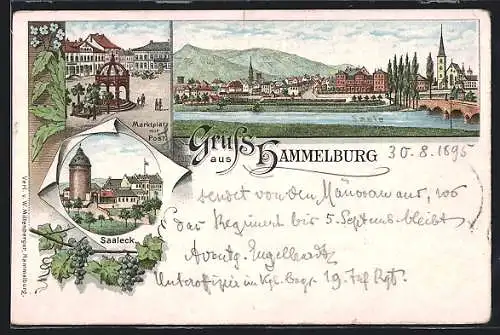 Marktplatz
mit
Post.
Saale
Gruss
aus
HAMMELBURG
30.8.1895
Saaleck.
sendet von den Manövern aus, wo
das Regiment bis 5. Septemb. bleibt
Engelhardt
Unteroffizier im Kgl. Bayr. 19. Inf. Rgt.
Verl. v. W. Mittenberger, Hammelburg.